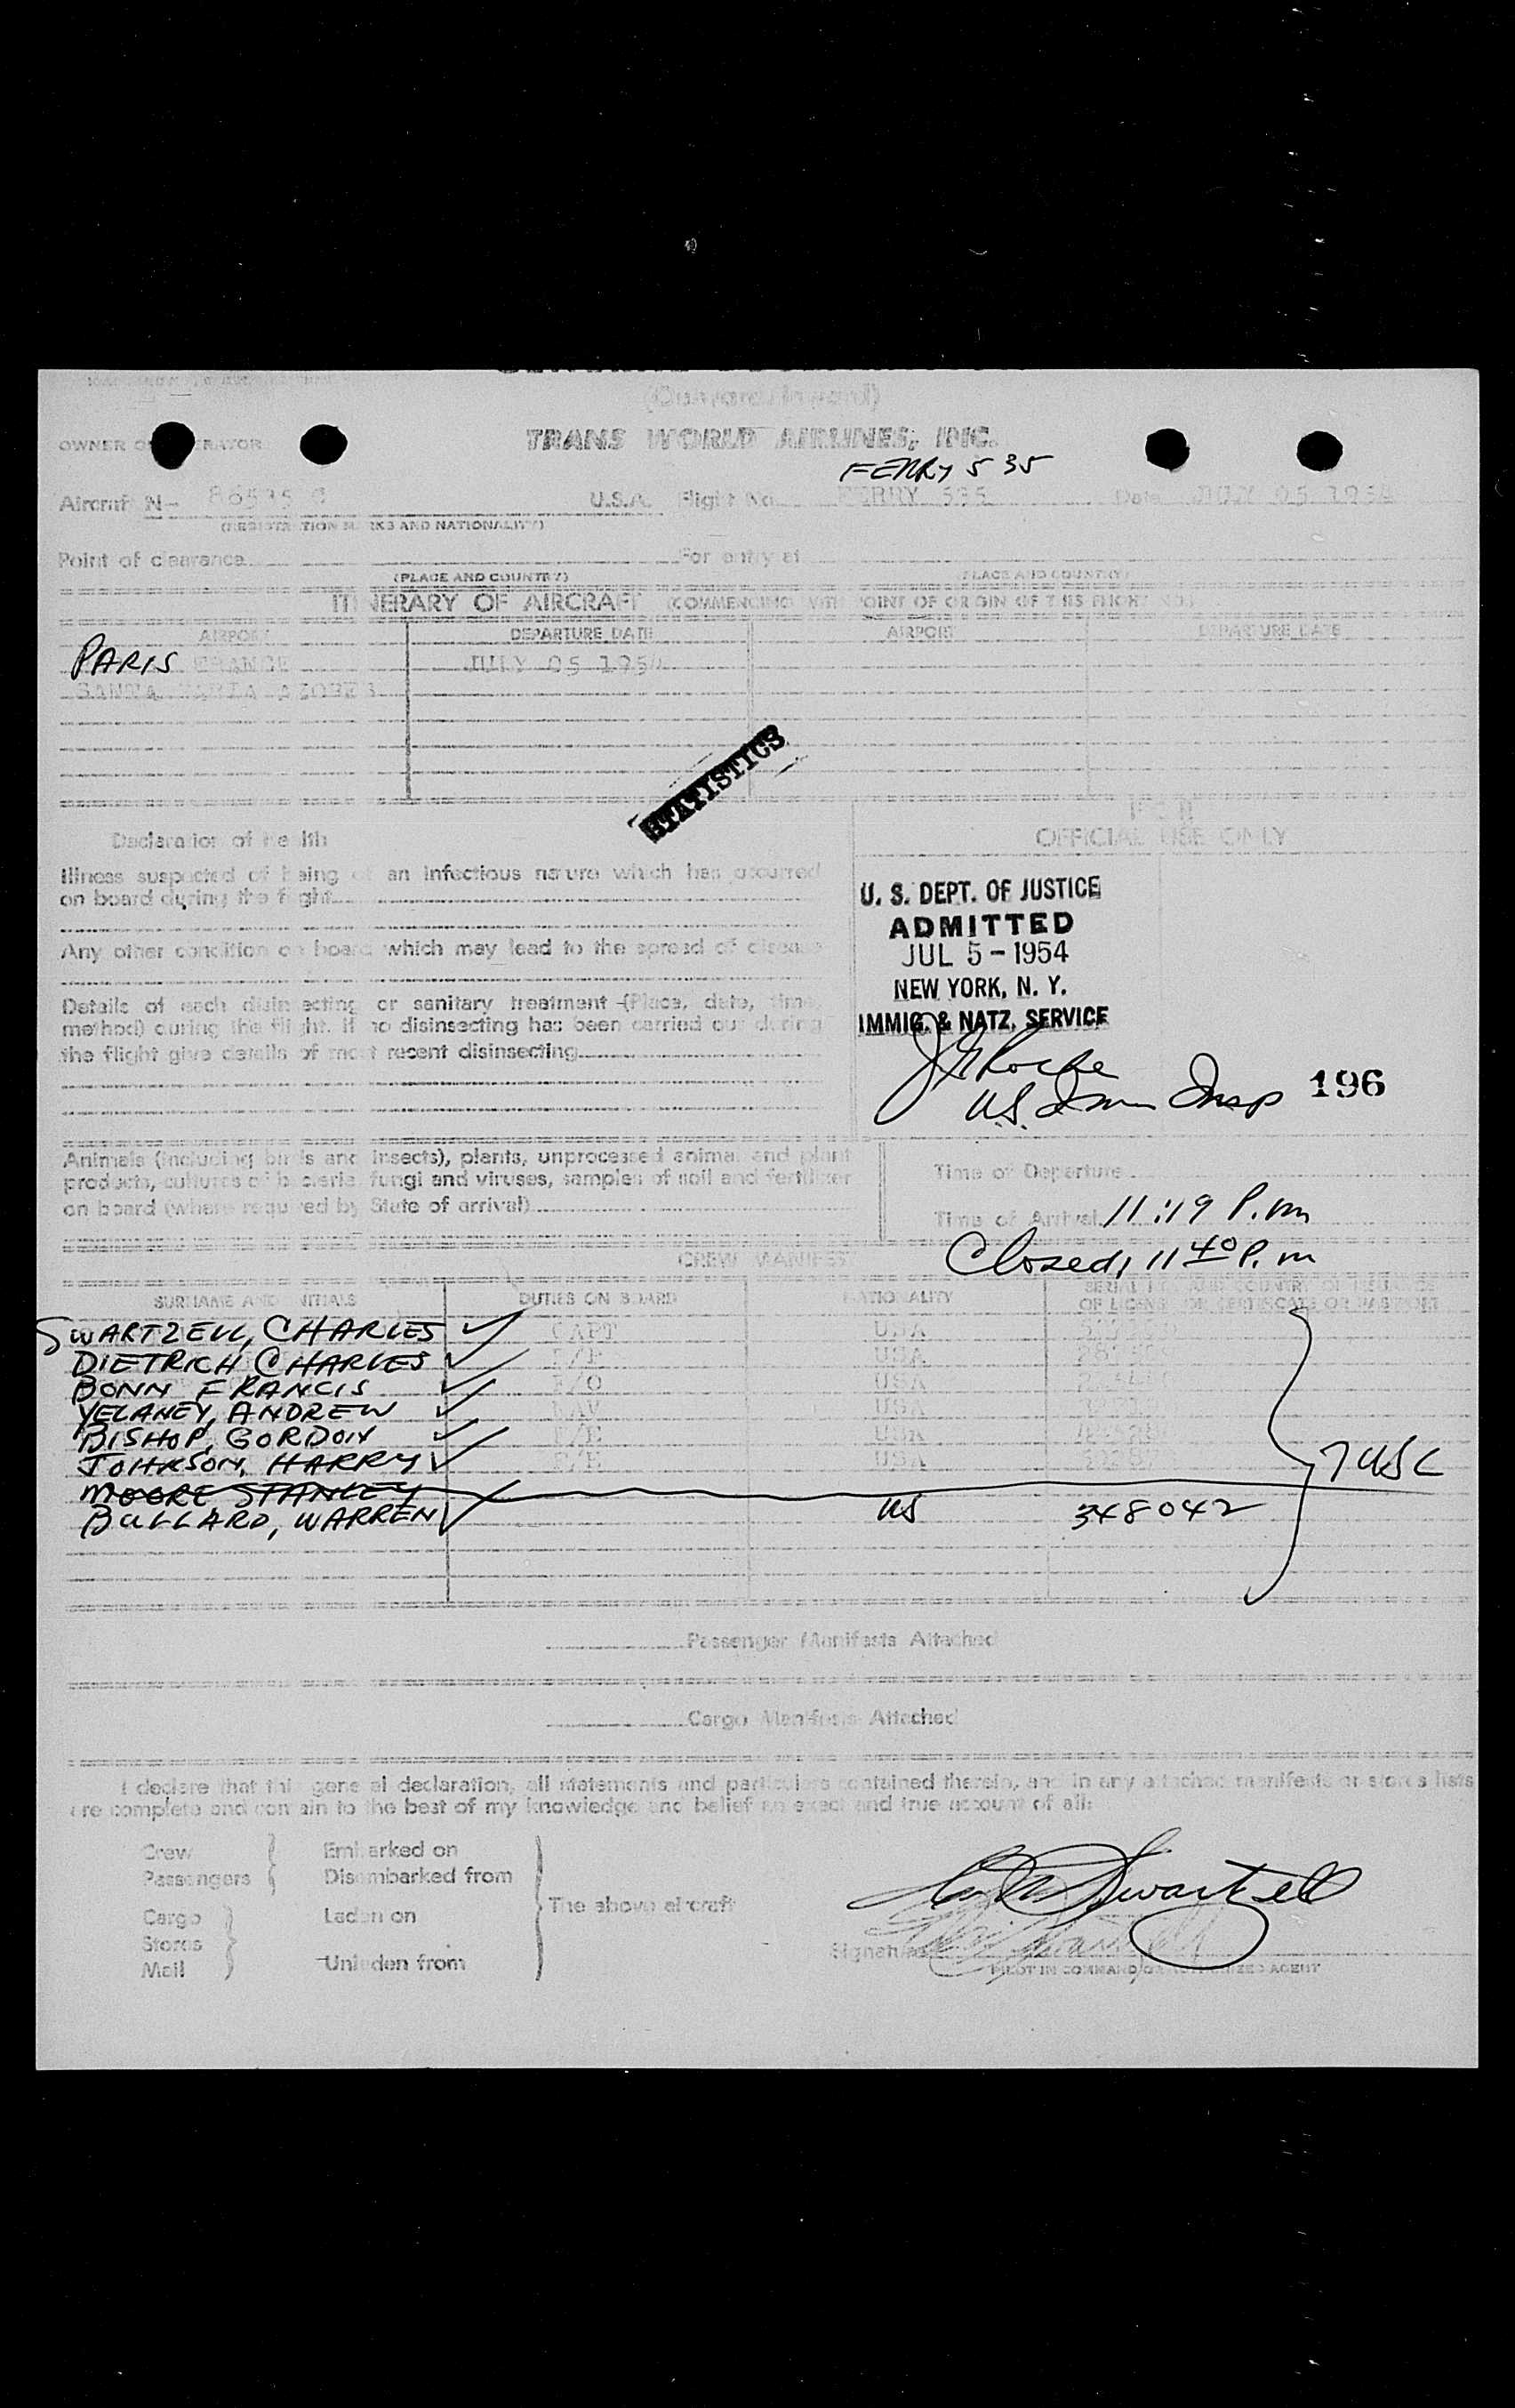 (Outward/Inward)
OWNER OR OPERATOR
TRANS WORLD AIRLINES, INC.
FERRY 535
Aircraft N- U.S.A. Flight No. FERRY 535 Date JULY 05 1954
(REGISTRATION MARKS AND NATIONALITY)
Point of clearance For entry at
(PLACE AND COUNTRY) (PLACE AND COUNTRY)
ITINERARY OF AIRCRAFT (COMMENCING WITH POINT OF ORIGIN OF THIS FLIGHT
AIRPORT DEPARTURE DATE AIRPORT DEPARTURE DATE
PARIS FRANCE JULY 05 1954
SANTA MARIA AZORES
STATISTICS
Declaration of Health
OFFICIAL USE ONLY
Illness suspected of being of an infectious nature which has occurred
on board during the flight
Any other condition on board which may lead to the spread of disease
Details of each disinsecting or sanitary treatment (Place, date, time
method) during the flight. If no disinsecting has been carried out during
the flight give details of most recent disinsecting
U. S. DEPT. OF JUSTICE
ADMITTED
JUL 5 - 1954
NEW YORK, N. Y.
IMMIG. & NATZ. SERVICE
U.S. Imm Insp 196
Animals (including birds and insects), plants, unprocessed animal and plant
products, cultures of bacteria fungi and viruses, samples of soil and fertilizer
on board (where required by State of arrival)
Time of Departure
Time of Arrival 11:19 P.m
Closed, 11 40 P.m
CREW MANIFEST
SURNAME AND INITIALS DUTIES ON BOARD NATIONALITY SERIAL NO. AND COUNTRY OF ISSUANCE
OF LICENSE OR CERTIFICATE OR PASSPORT
SWARTZELL, CHARLES CAPT USA
DIETRICH CHARLES USA
BONN FRANCIS F/O USA
YELANEY, ANDREW NAV USA
BISHOP, GORDON F/E USA
JOHNSON, HARRY F/E USA
7 USC
MOORE STANLEY
BULLARD, WARREN US 348042
Passenger Manifests Attached
Cargo Manifests Attached
I declare that this general declaration, all statements and particulars contained therein, and in any attached manifests or stores lists
are complete and contain to the best of my knowledge and belief an exact and true account of all:
Crew Embarked on
Passengers Disembarked from
Cargo Laden on The above aircraft
Stores
Mail Unladen from
Swartzell
Signature
PILOT IN COMMAND OR AUTHORIZED AGENT